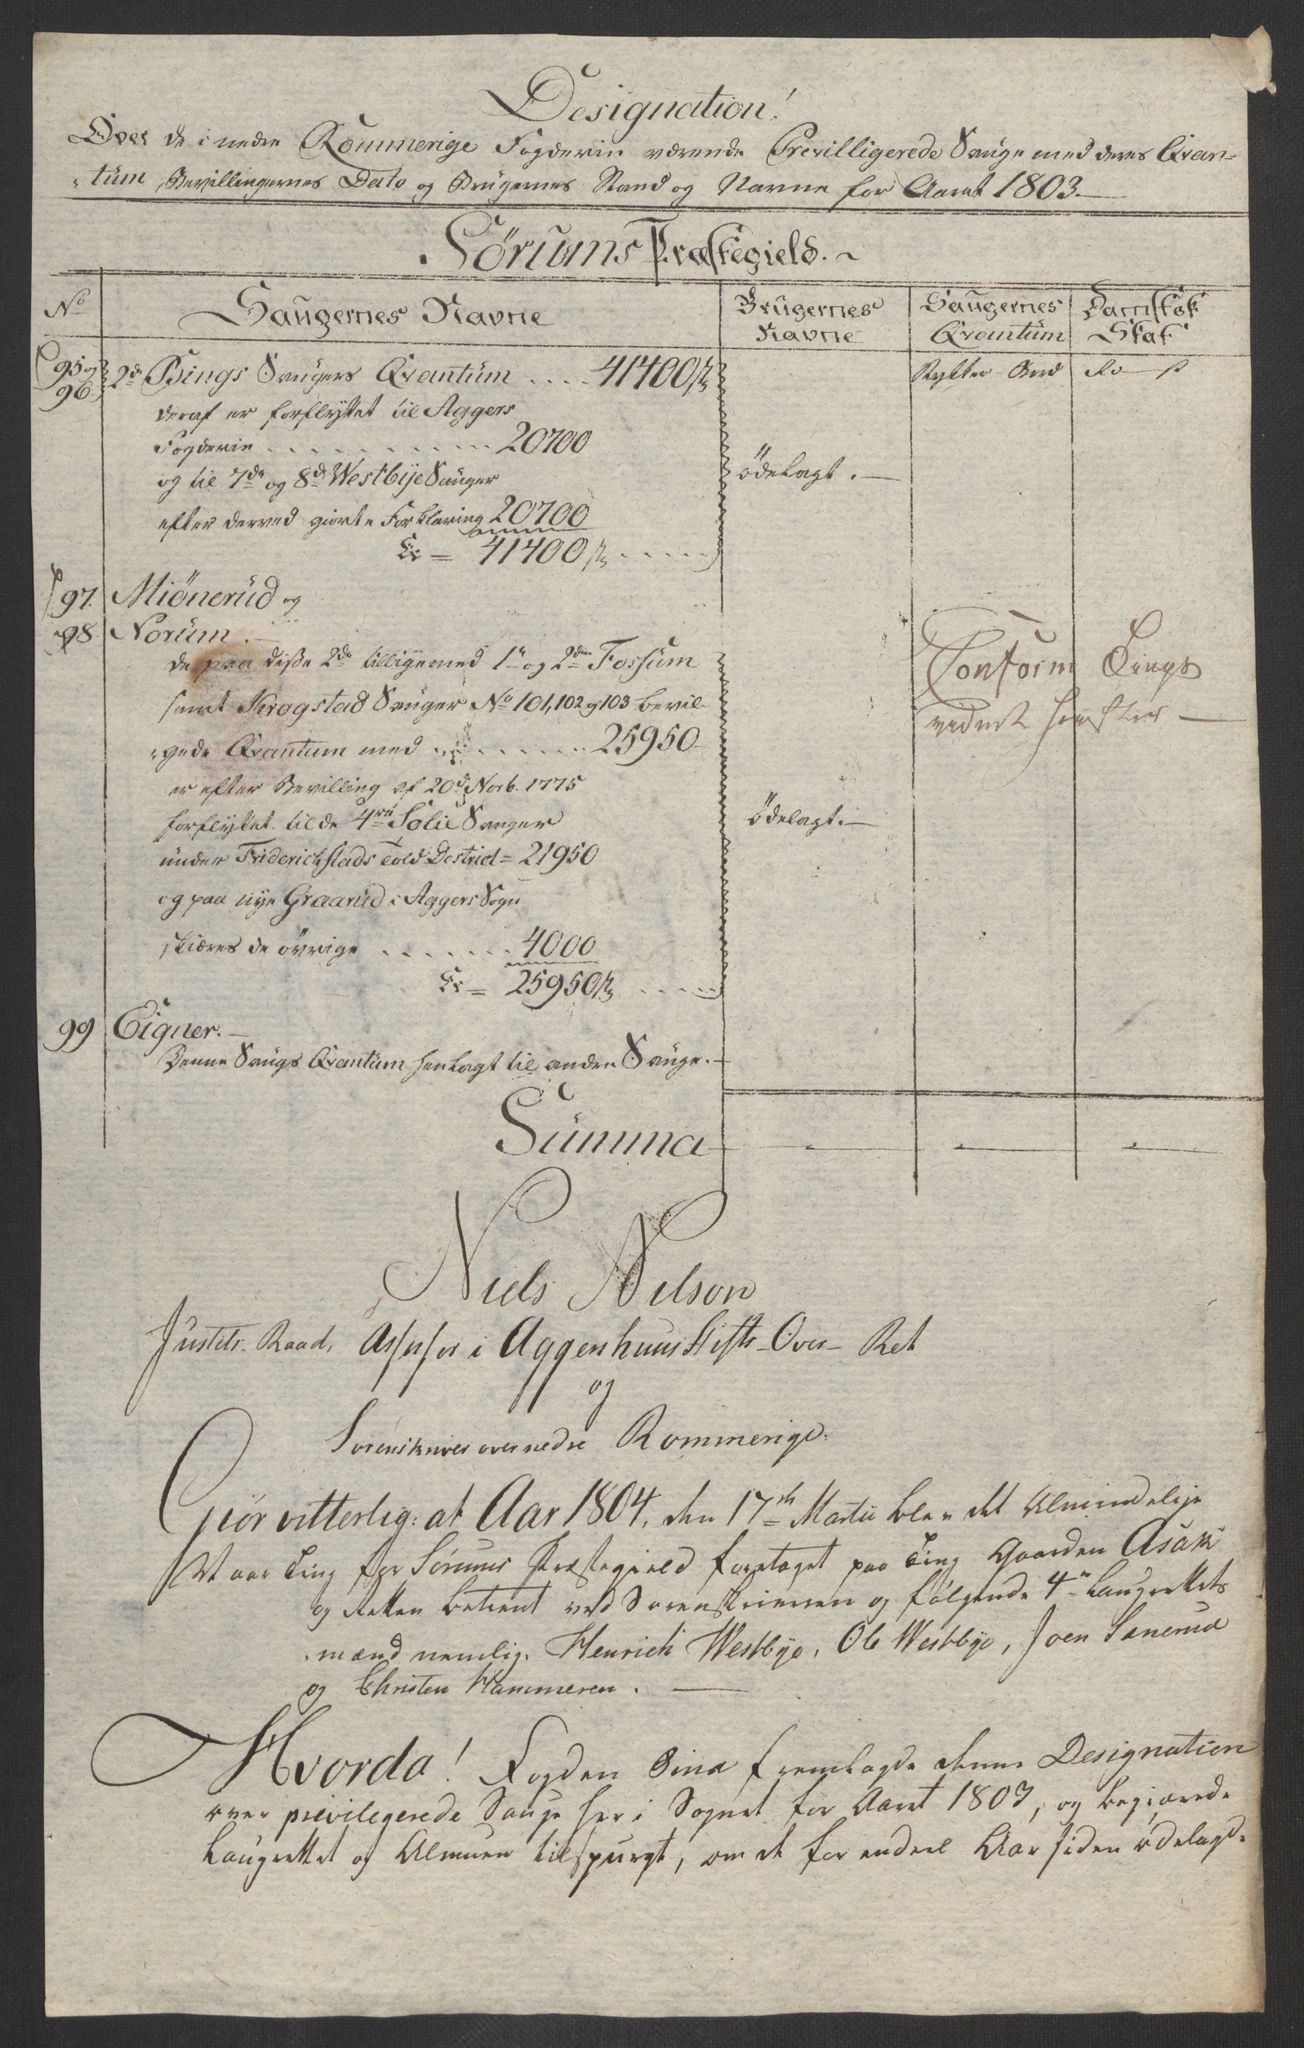 Designation!
Over de i nedre Rommerige Fogderie værende Previlligerede Sauge med deres Qvan-
tum, Bevillingernes Dato og Brugernes Stand og Navne for Aaret 1803.
Sörums Præstegield.
No
Saugernes Navne
Brugernes Navne
Saugernes Qvantum
Dansk Skat
95 og 96
2de Bings Saugers Qvantum .... 41400
Rytter Bord
deraf er forflyttet til Aggers
Fogderie ........ 20700
og til 7de og 8de Westbye Sauger
ödelagt.
efter derved giorte Forklaring 20700
Er = 41400
97. Miönerüd og
98 Norüm.
de paa disse 2de tilligemed 1te og 2den Fossüm
Conform Tings
samt Krogstad Sauger No 101, 102 og 103 bevil-
vidnet
gede Qvantum med ....... 25950
er efter Bevilling af 20de Novb. 1775
forflyttet til de 4re Solie Sauger
ödelagt.
under Friderichstads Told District = 21950
og paa nye Graarüd i Aggers Sogn
skiæres de övrige ...... 4000
Er = 25950
99 Eigner.
Denne Saugs Qvantum henlagt til anden Sauge.
Summa
Niels Nilson
Justits Raad, Assessor i Aggershuus Stifts-Over-Ret
og
Sorenskriver over nedre Rommerige.
Giör vitterlig: at Aar 1804, den 17de Martii blev det Almindelige
Vaar Ting for Sörums Præstegield foretaget paa Ting Gaarden Asak
og Retten betient ved Sorenskriveren og følgende 4re Laugrettes
mænd nemlig. Henrich Westbye, Ole Westbye, Joen Sanerud
og Christen Hammeren.
Hvorda! Fogden fremlagde denne Designation
over previlegerede Sauge her i Sognet for Aaret 1803, og begiærede
Laugrettet og Almuen tilspurgt, om de for endeel Aar siden ödelagde